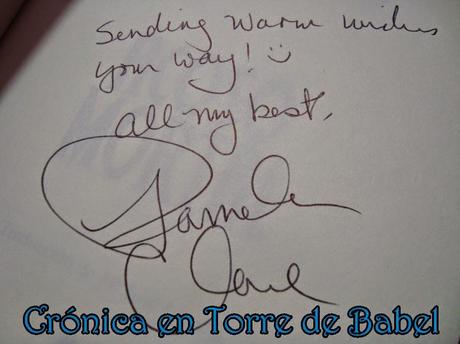 Sending warm wishes
your way! ☺
all my best,
Pamela
Clare
Crónica en Torre de Babel